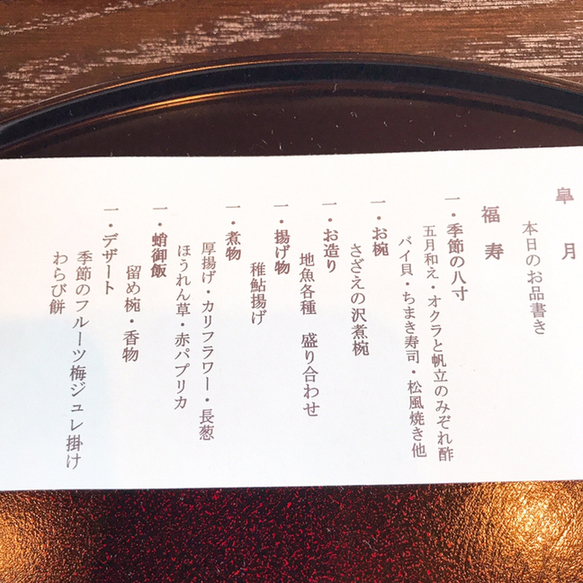 皐月
本日のお品書き
福寿
一・季節の八寸
五月和え・オクラと帆立のみぞれ酢
バイ貝・ちまき寿司・松風焼き他
一・お椀
さざえの沢煮椀
一・お造り
地魚各種 盛り合わせ
一・揚げ物
稚鮎揚げ
一・煮物
厚揚げ・カリフラワー・長葱
ほうれん草・赤パプリカ
一・蛸御飯
留め椀・香物
一・デザート
季節のフルーツ梅ジュレ掛け
わらび餅